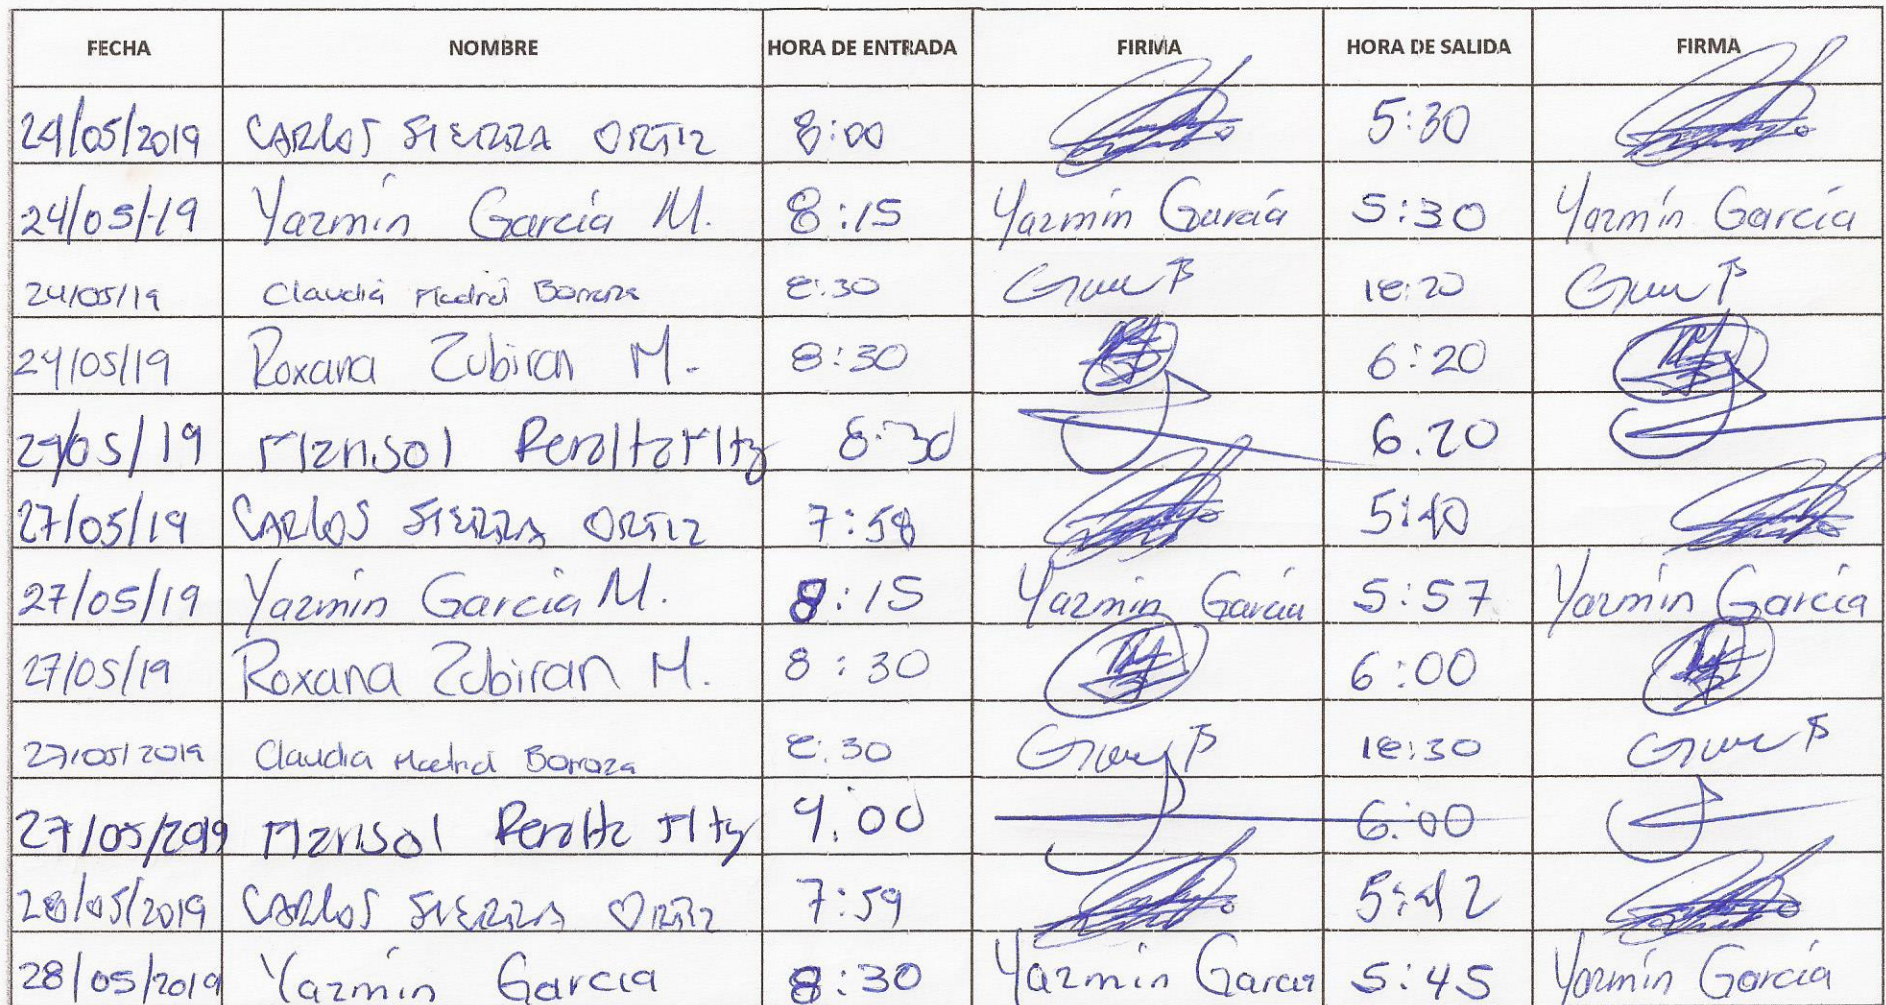 FECHA NOMBRE HORA DE ENTRADA FIRMA HORA DE SALIDA FIRMA
24/05/2019 CARLOS SIERRA ORTIZ 8:00 5:30
24/05/19 Yazmín García M. 8:15 Yazmín García 5:30 Yazmín García
24/05/19 Claudia Madrid Borraza 8:30 18:20
24/05/19 Roxana Zubiran M. 8:30 6:20
24/05/19 Marisol Peralta Mtz 8:30 6.20
27/05/19 CARLOS SIERRA ORTIZ 7:58 5:40
27/05/19 Yazmín García M. 8:15 Yazmín García 5:57 Yazmín García
27/05/19 Roxana Zubiran M. 8:30 6:00
27/05/2019 Claudia Madrid Borraza 8:30 18:30
27/05/2019 Marisol Peralta Mtz 9:00 6:00
28/05/2019 CARLOS SIERRA ORTIZ 7:59 5:42
28/05/2019 Yazmín García 8:30 Yazmín García 5:45 Yazmín García